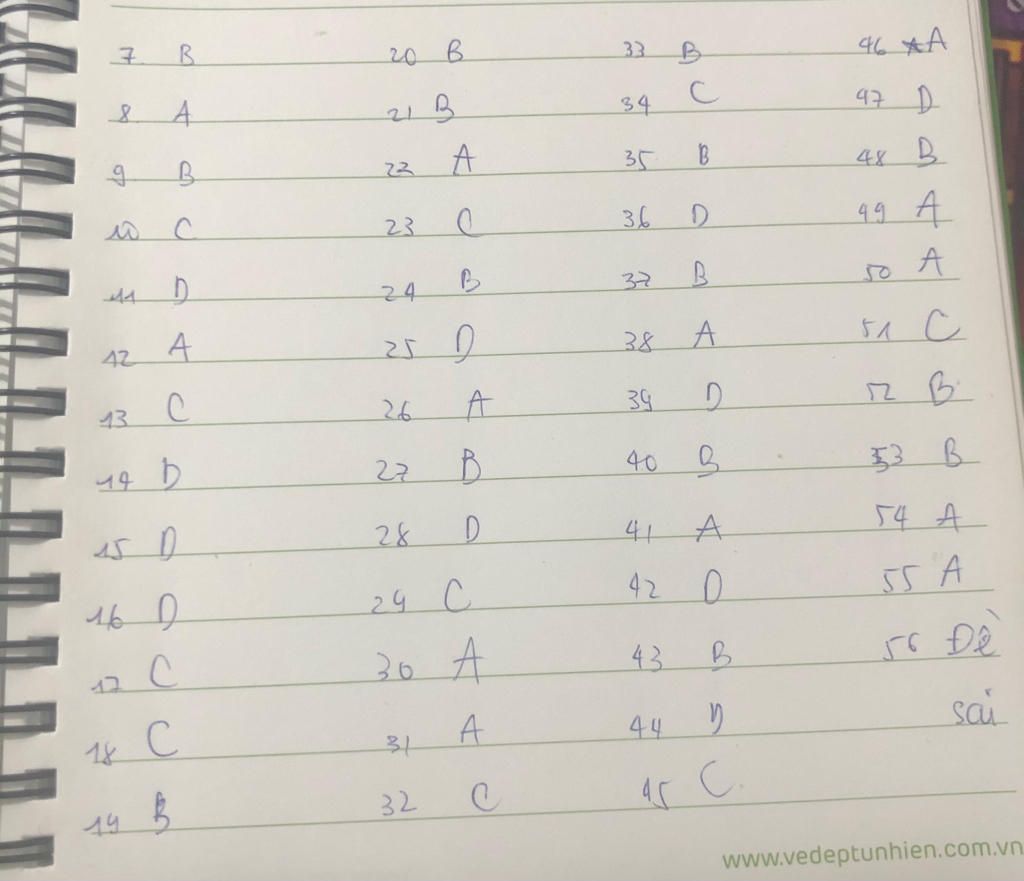 7 B
8 A
9 B
10 C
11 D
12 A
13 C
14 D
15 D
16 D
17 C
18 C
19 B
20 B
21 B
22 A
23 C
24 B
25 D
26 A
27 B
28 D
29 C
30 A
31 A
32 C
33 B
34 C
35 B
36 D
37 B
38 A
39 D
40 B
41 A
42 D
43 B
44 D
45 C
46 A
47 D
48 B
49 A
50 A
51 C
52 B
53 B
54 A
55 A
56 Đề
sai
www.vedeptunhien.com.vn